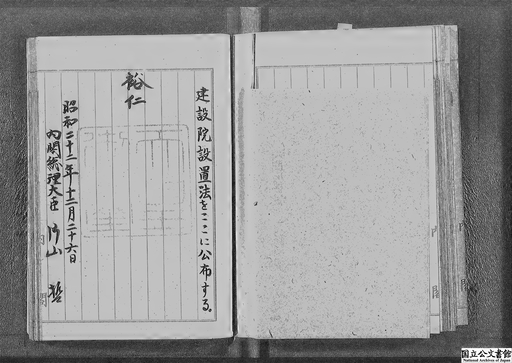 建設院設置法をここに公布する。
裕仁
昭和二十二年十二月二十六日
内閣総理大臣 片山 哲
国立公文書館
National Archives of Japan